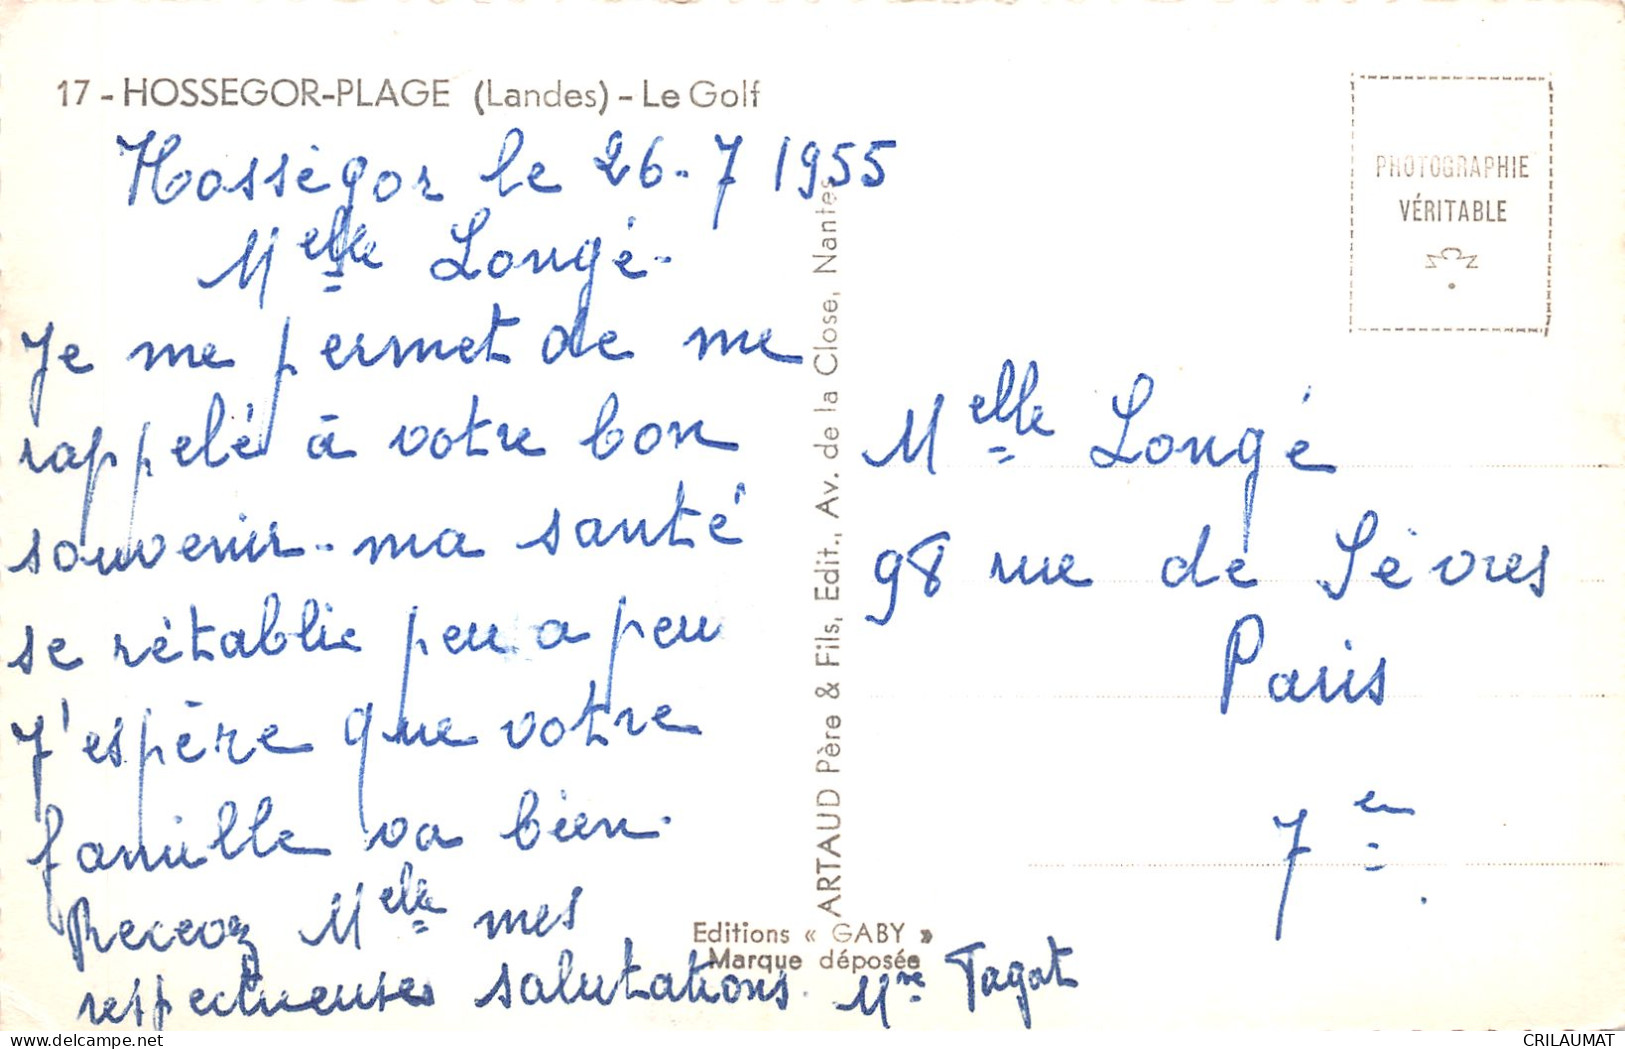 17 - HOSSEGOR-PLAGE (Landes) - Le Golf
Hossègor le 26-7 1955
Melle Lougé.
Je me permet de me
rappelé à votre bon
souvenir - ma santé
se rétablie peu a peu
J'espère que votre
famille va bien.
Recevoz Melle mes
respectueuses salutations. Mme Tagat
ARTAUD Père & Fils, Edit., Av. de la Close, Nantes
Editions « GABY »
Marque déposée
PHOTOGRAPHIE
VÉRITABLE
Melle Lougé
98 rue de Sèvres
Paris
7 e
CRILAUMAT
delcampe.net